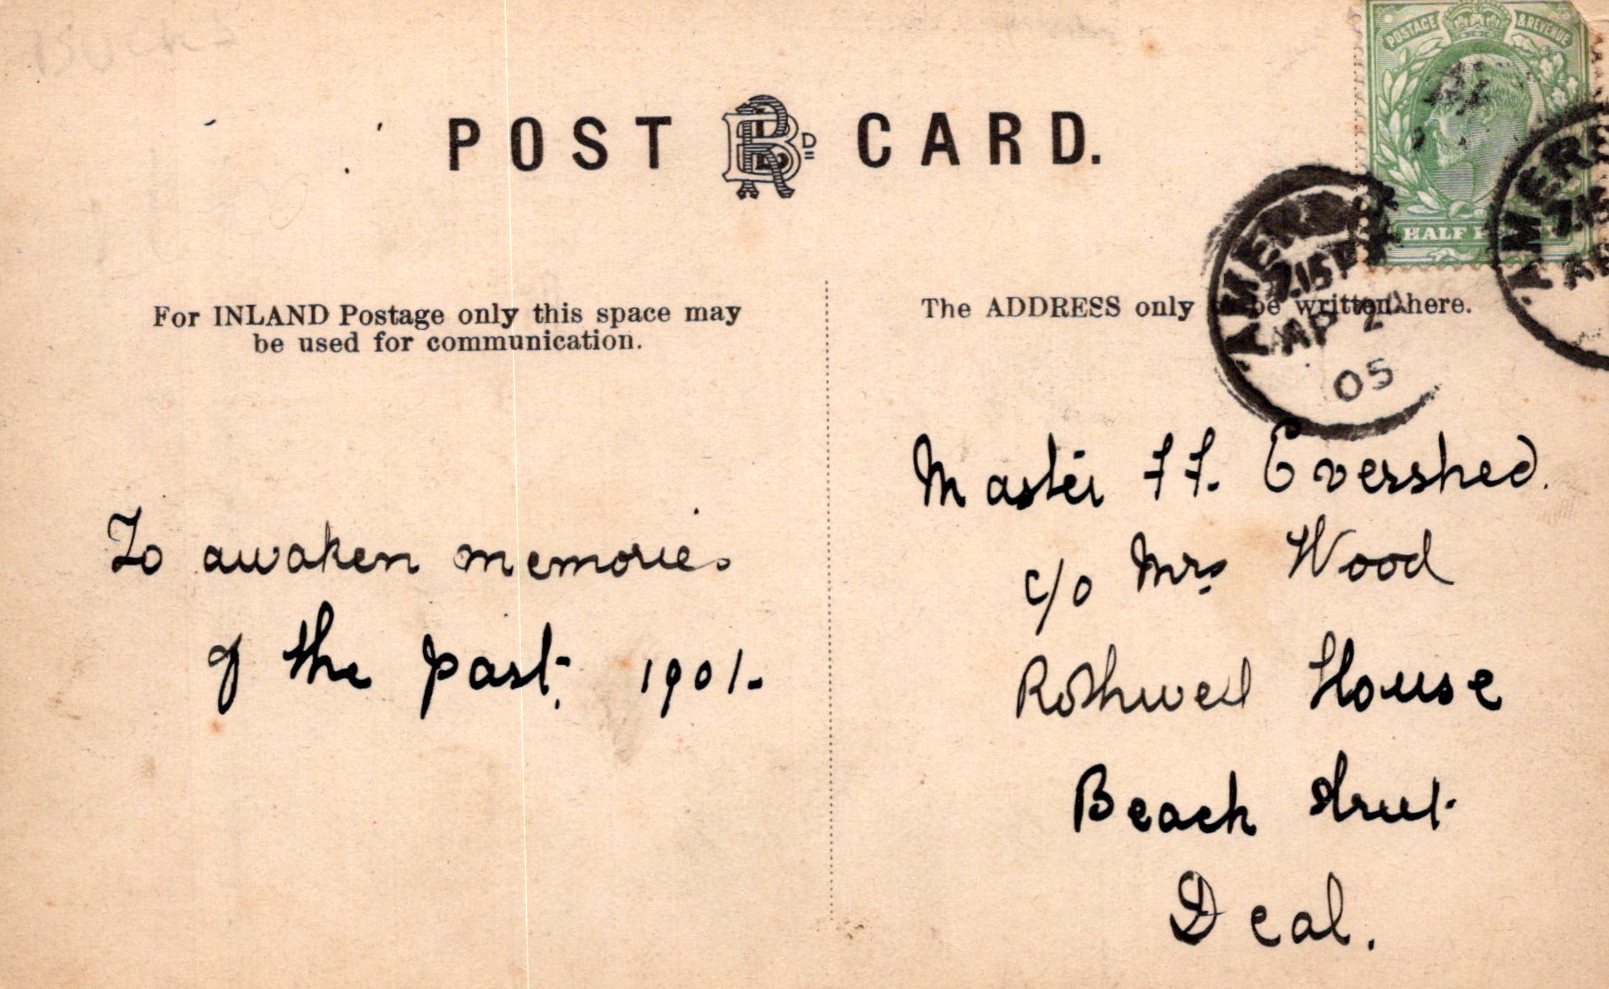 Bucks
POSTAGE & REVENUE
POST CARD.
HALF
AMER
7.15 P
AP 2
05
AMER
7.15
AP
For INLAND Postage only this space may
be used for communication.
The ADDRESS only to be written here.
To awaken memories
of the past. 1901.
Master F F. Evershed.
c/o Mrs Wood
Rothwell House
Beach Street
Deal.